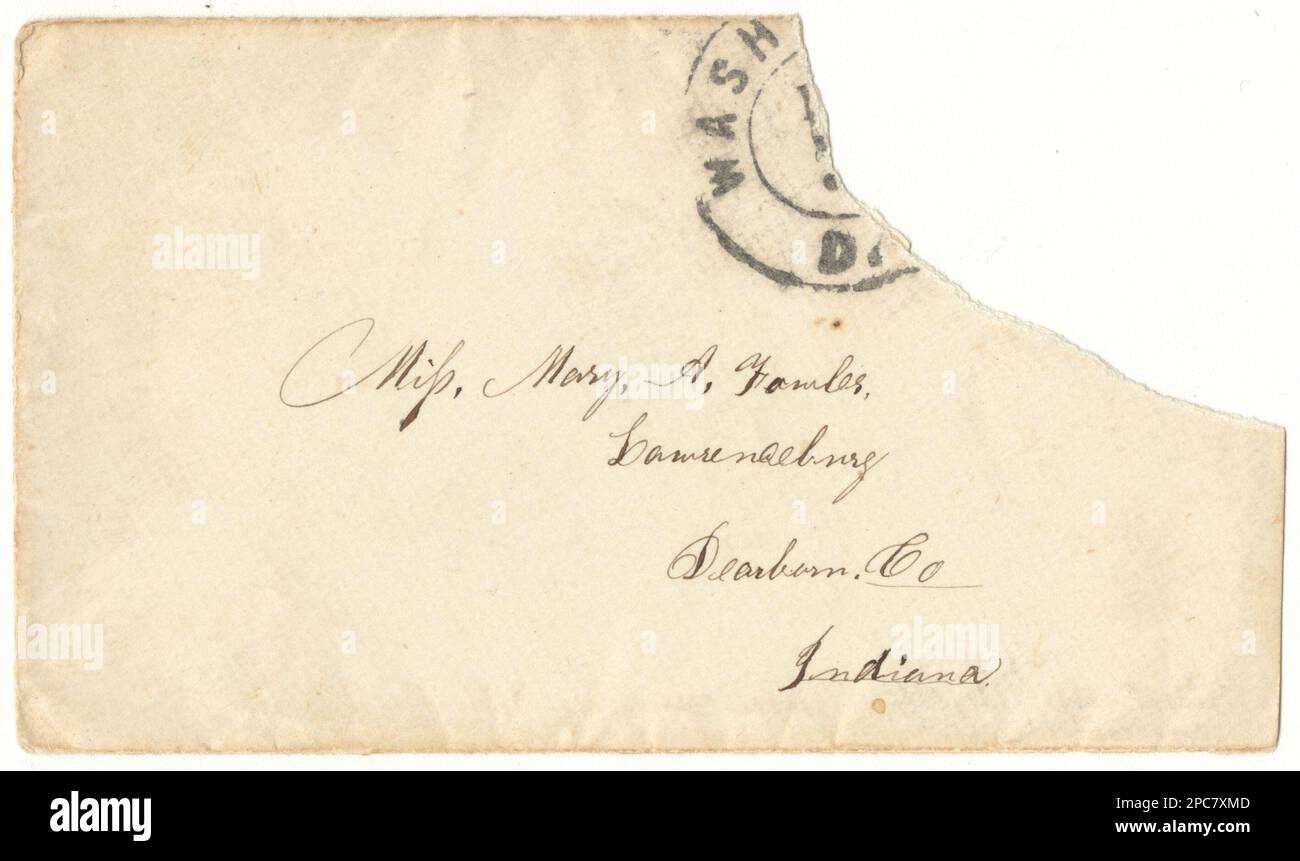 WASH
D
Miss. Mary. A. Fowler.
Lawrenceburg
Dearborn. Co
Indiana.
alamy
alamy
Image ID: 2PC7XMD
www.alamy.com